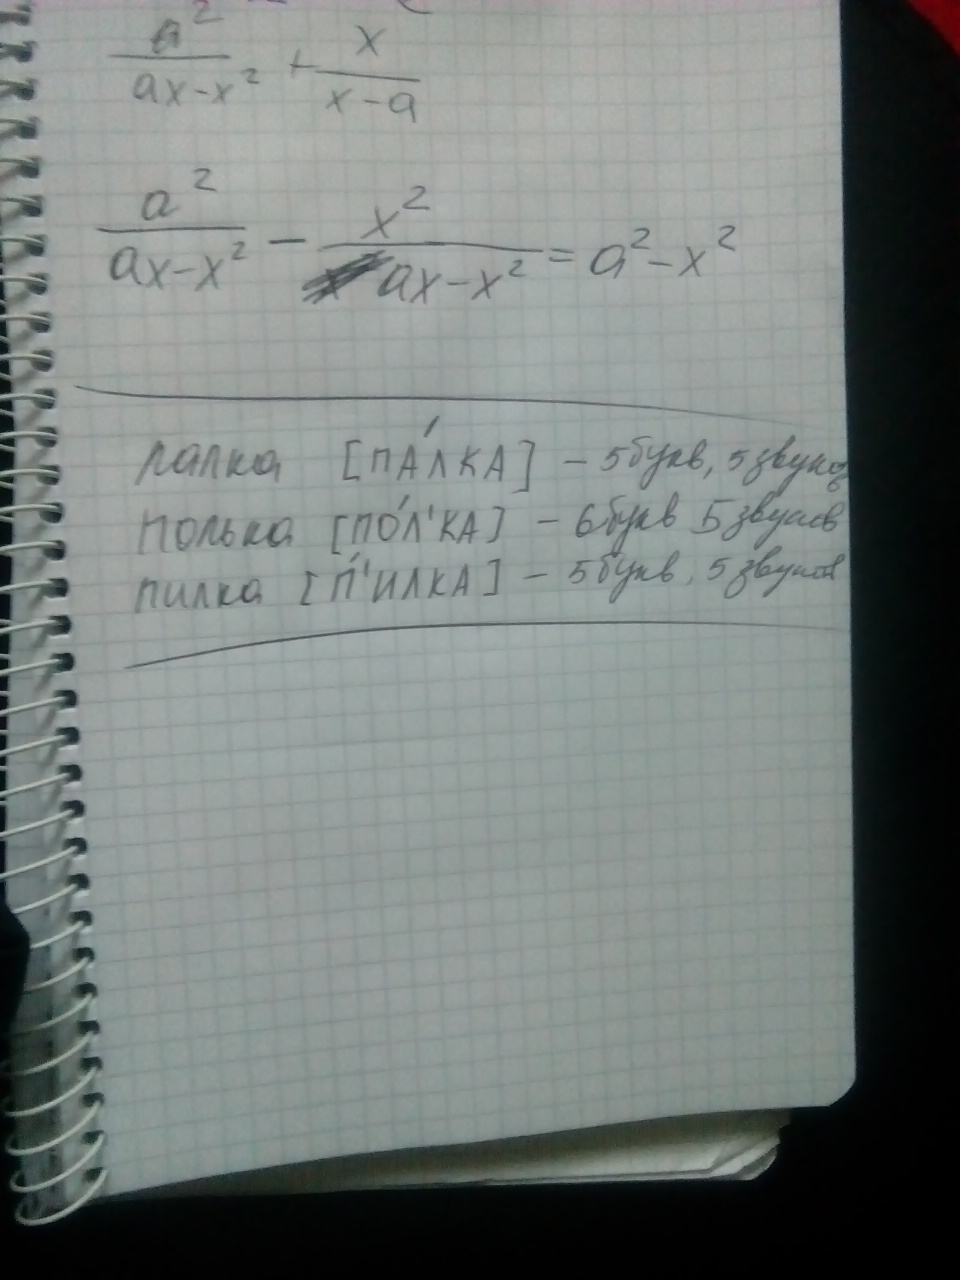 a²/(ax-x²) + x/(x-a)
a²/(ax-x²) - x²/(ax-x²) = a²-x²
палка [ПА́ЛКА] - 5 букв, 5 звуков
полька [ПО́Л'КА] - 6 букв 5 звуков
пилка [П'И́ЛКА] - 5 букв, 5 звуков